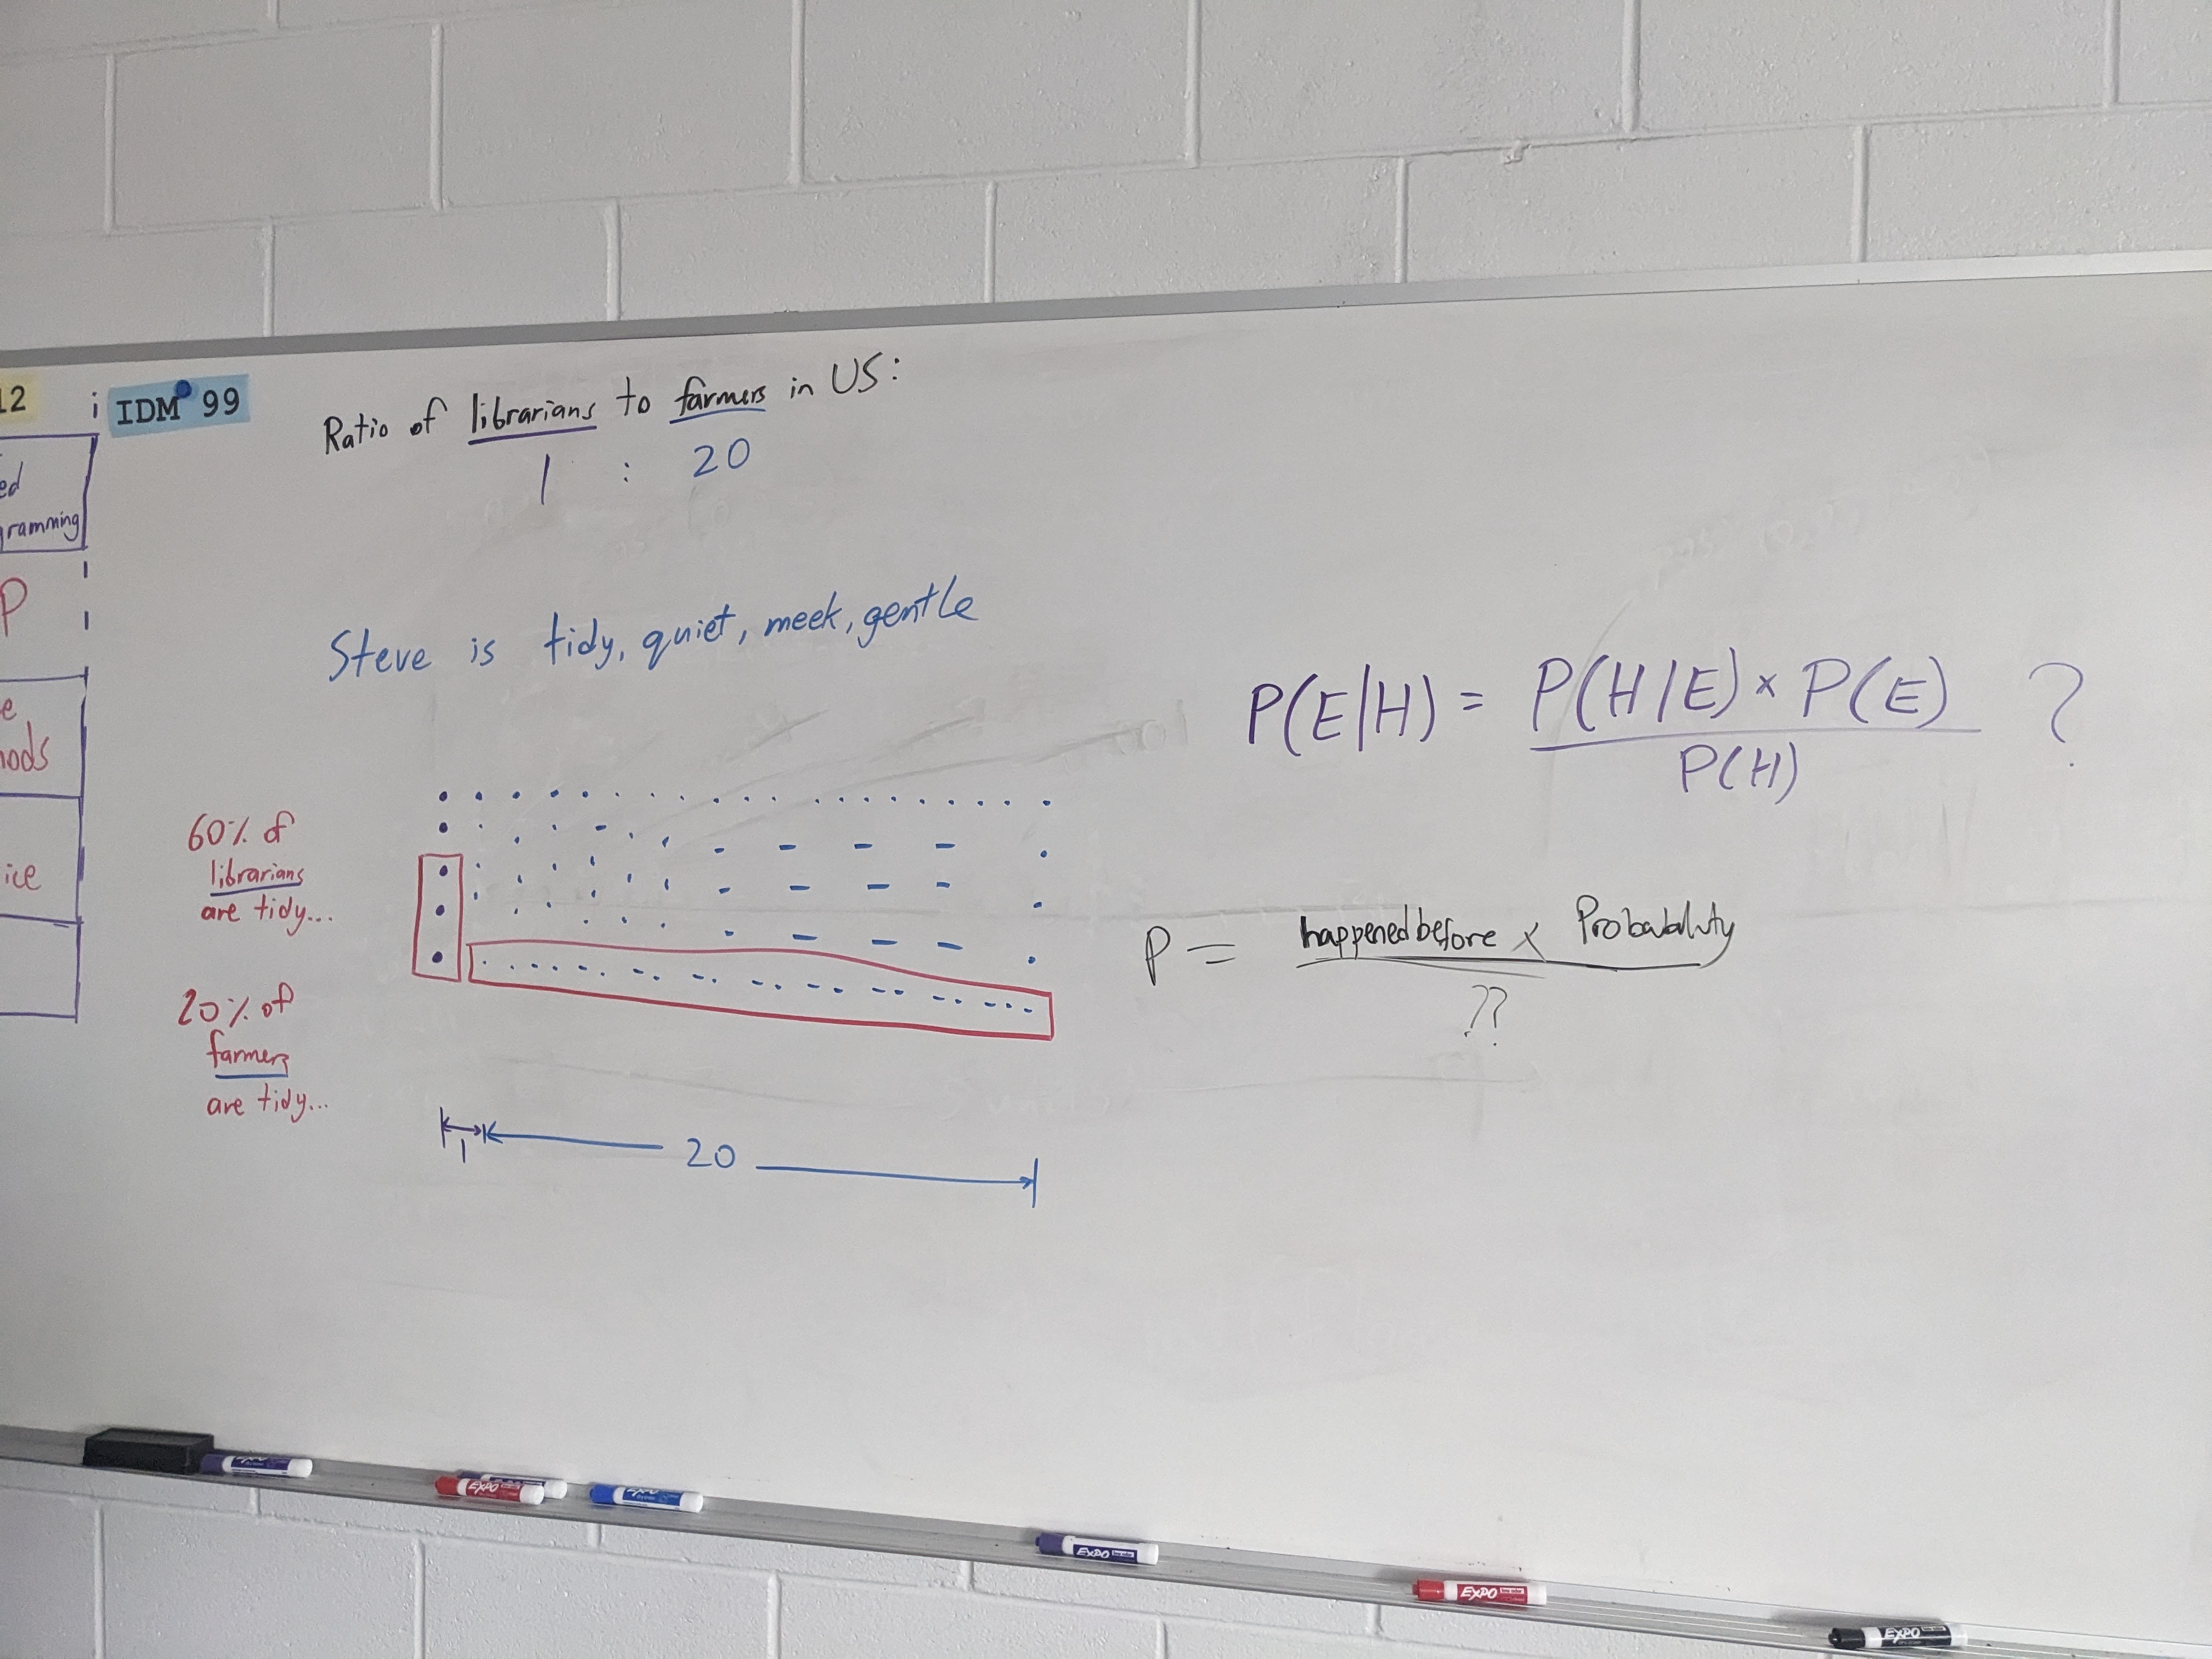 12
i IDM 99
ed
gramming
P
e
hods
ice
Ratio of librarians to farmers in US:
1 : 20
Steve is tidy, quiet, meek, gentle
60% of
librarians
are tidy...
20% of
farmers
are tidy...
1
20
P(E|H) = P(H|E) × P(E) ?
P(H)
P = happened before × Probability
??
EXPO
EXPO
EXPO
EXPO
EXPO